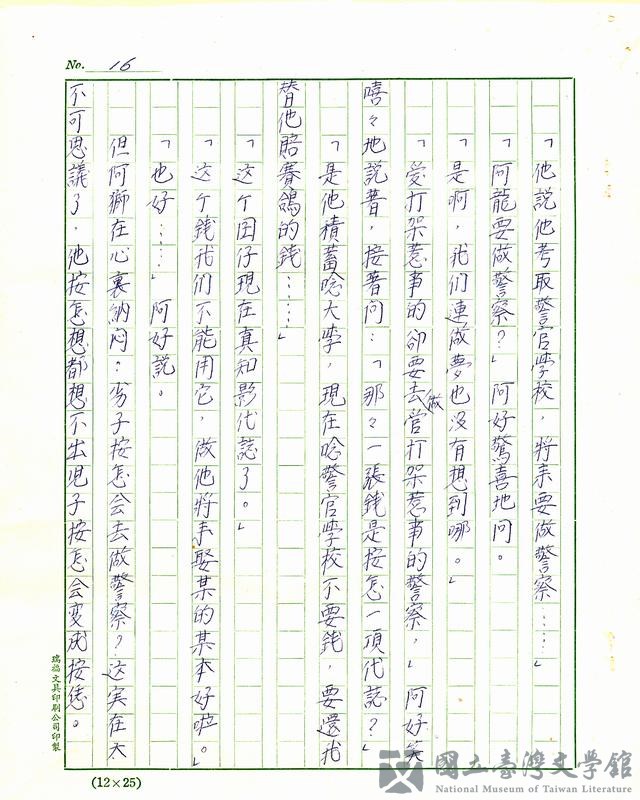 No. 16
「他説他考取警官學校，將來要做警察……」
「阿龍要做警察？」阿好驚喜地问。
「是啊，我们連做夢也沒有想到哪。」
「愛打架惹事的卻要去做管打架惹事的警察，」阿好笑
嘻々地説着，接着问：「那々一張錢是按怎一項代誌？」
「是他積蓄唸大學，現在唸警官學校不要錢，要還我
替他賠賽鴿的錢……」
「这个囝仔現在真知影代誌了。」
「这个錢我们不能用它，做他將來娶某的某本好啦。」
「也好……」阿好説。
但阿獅在心裏納闷：劣子按怎会去做警察？这实在太
不可思議了，他按怎想都想不出兒子按怎会变成按恁。
瑞福文具印刷公司印製
(12×25)
國立臺灣文學館
National Museum of Taiwan Literature